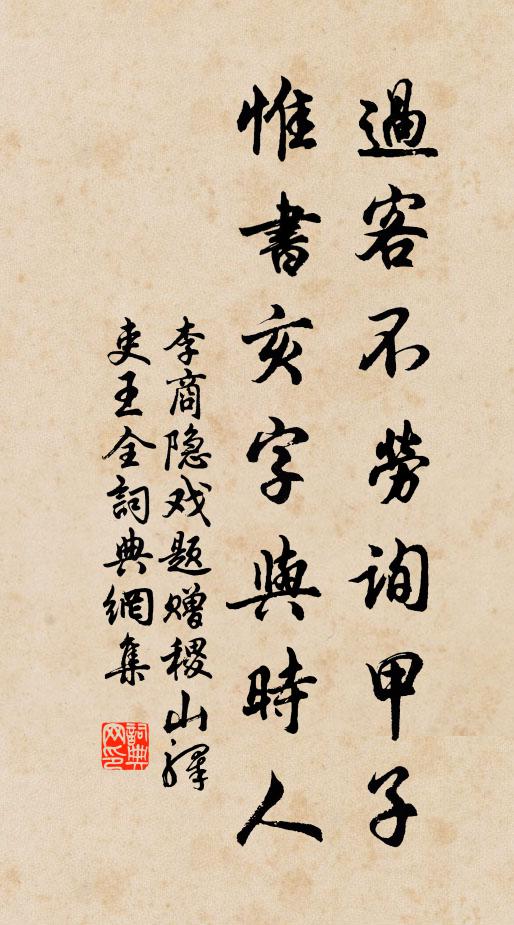 過客不勞詢甲子
惟書亥字與時人
李商隐戏题赠稷山驛
吏王全詞典網集
詞典
网印